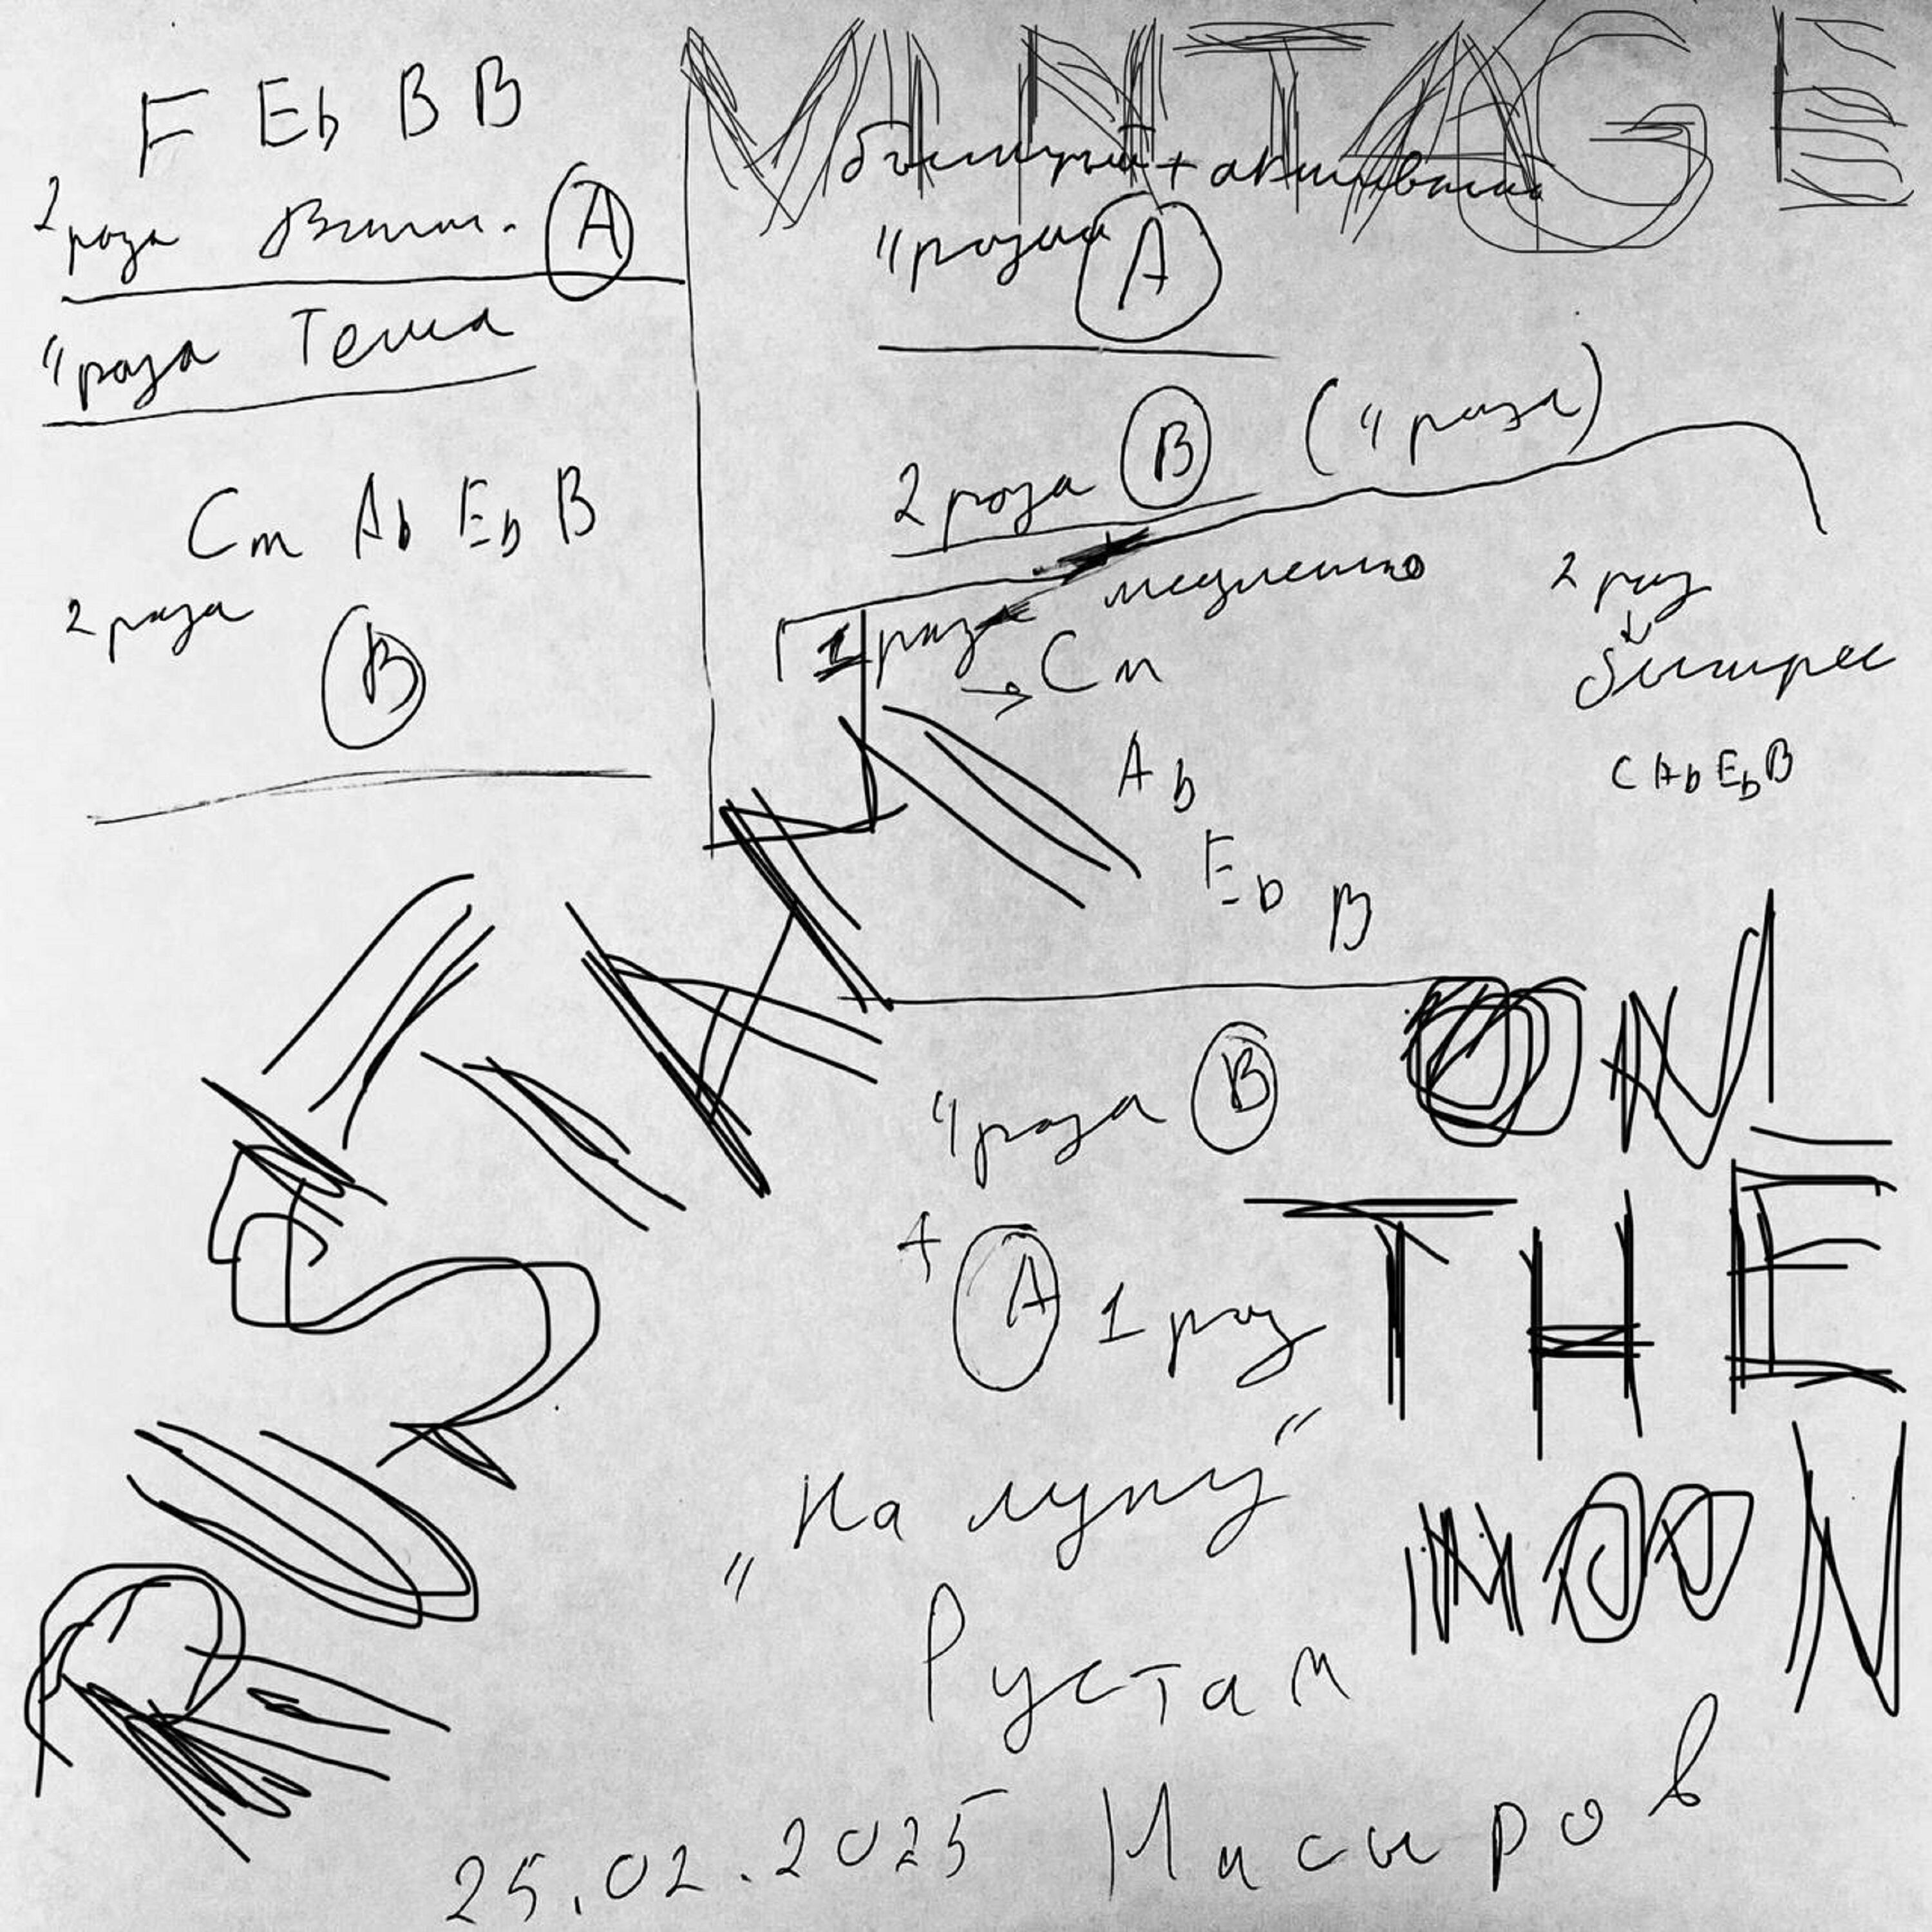 VINTAGE
F Eb B B
2 раза Вступ. Ⓐ
4 раза Тема
Cm Ab Eb B
2 раза
Ⓑ
быстрый +
4 раза Ⓐ
2 раза Ⓑ (4 раза)
1 раз медленно
→ Cm
Ab
Eb B
2 раз
↓
быстрее
C Ab Eb B
4 раза Ⓑ
+ Ⓐ 1 раз
RUSTAM
ON
THE
MOON
„На луну“
Рустам
25.02.2025 Насыров